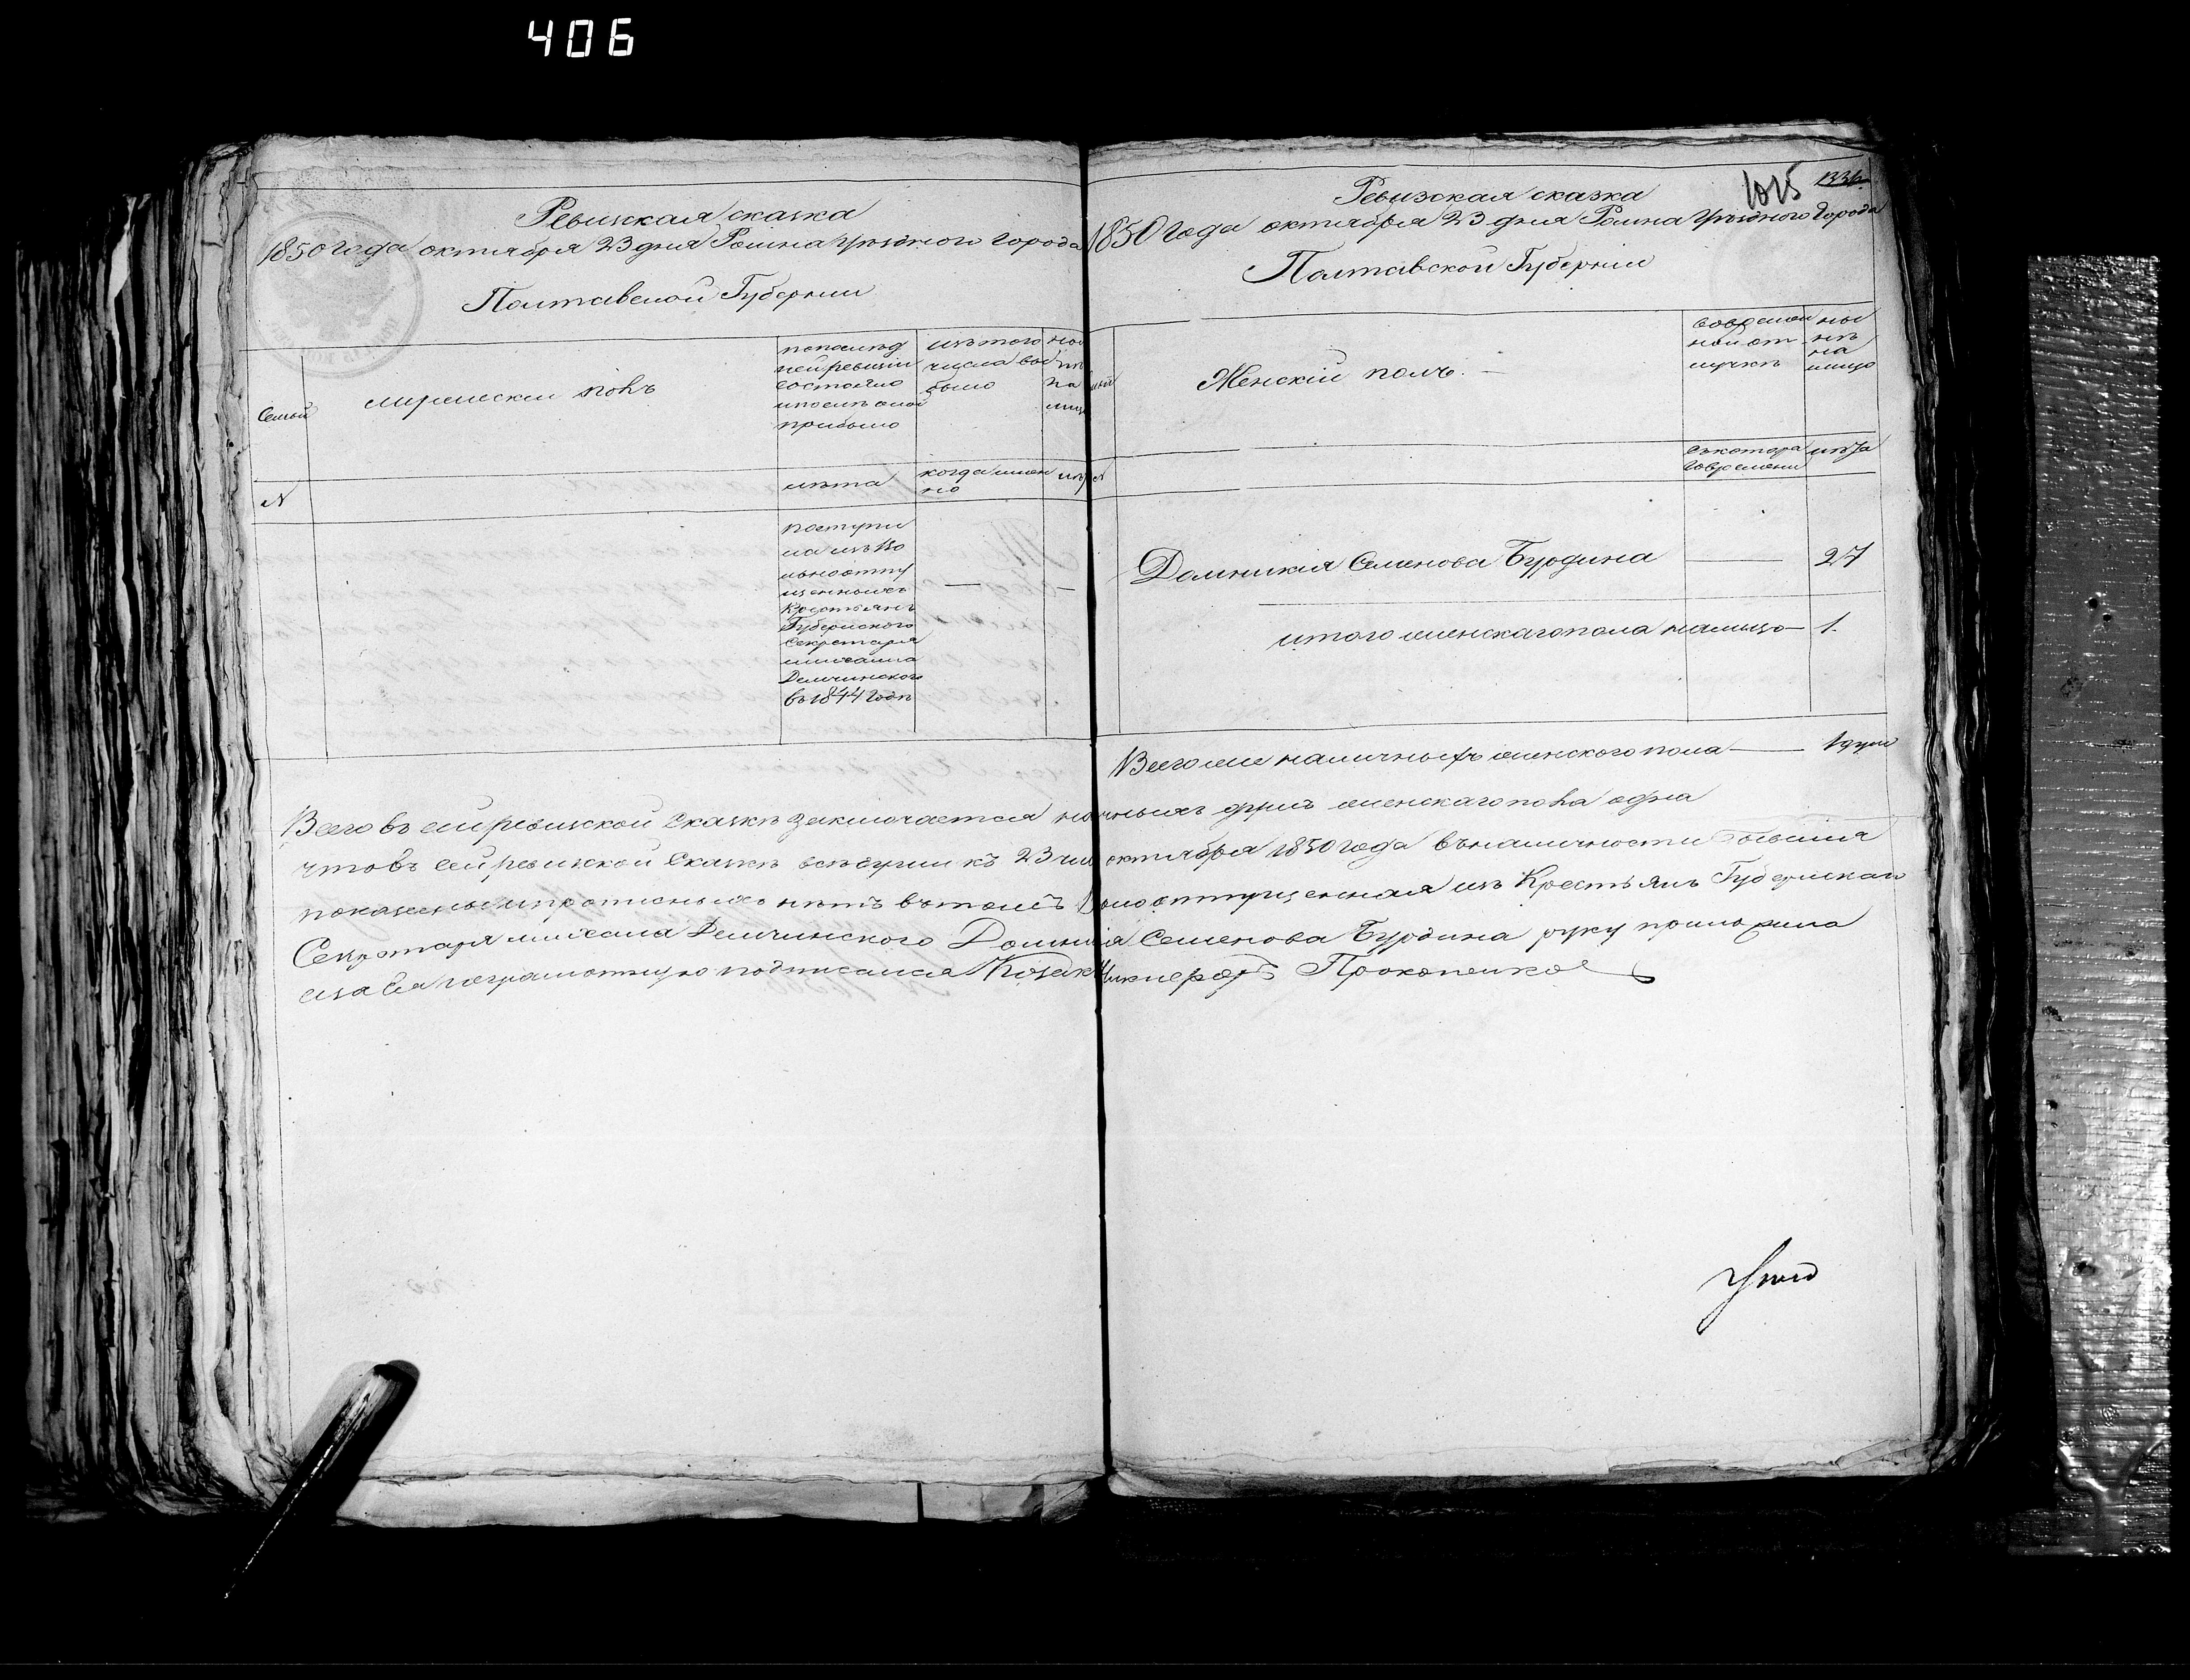 406
Ревизская сказка
1850 года октября 23 дня Ромна уѣздного города
Полтавской Губернии
Семьи
мужеский полъ
по послед
ней ревизии
состояло
и после оной
прибыло
изъ того
числа вы
было
ны
нѣ
на
лицо
№
лѣта
когда имен
но
поступи
ла изъ во
льноотпу
щенныхъ
Крестьянъ
Губернского
Секретаря
михаила
Демчинского
въ 1844 годѣ
1015
Ревизская сказка
1850 года октября 23 дня Ромна Уѣздного Города
Полтавской Губернии
Женский полъ
во времен
ной от
лучкѣ
ны
нѣ
на
лицо
съ котора
го времени
лѣта
Домникия Семенова Бурдина — 27
итого женскаго пола налицо — 1.
Всего же наличныхъ женского пола — 1 душа
Всего въ сей ревизской сказкѣ заключается душъ женскаго пола одна
что въ сей ревизской сказкѣ все души къ 23 октября 1850 года въ наличности бывшия
показаны и прописныхъ нѣтъ въ томъ отпущенная изъ Крестьянъ Губернскаго
Секретаря михаила Демчинского Семенова Бурдина руку приложила
а за Ея неграмотную подписался Козак Прокопенко